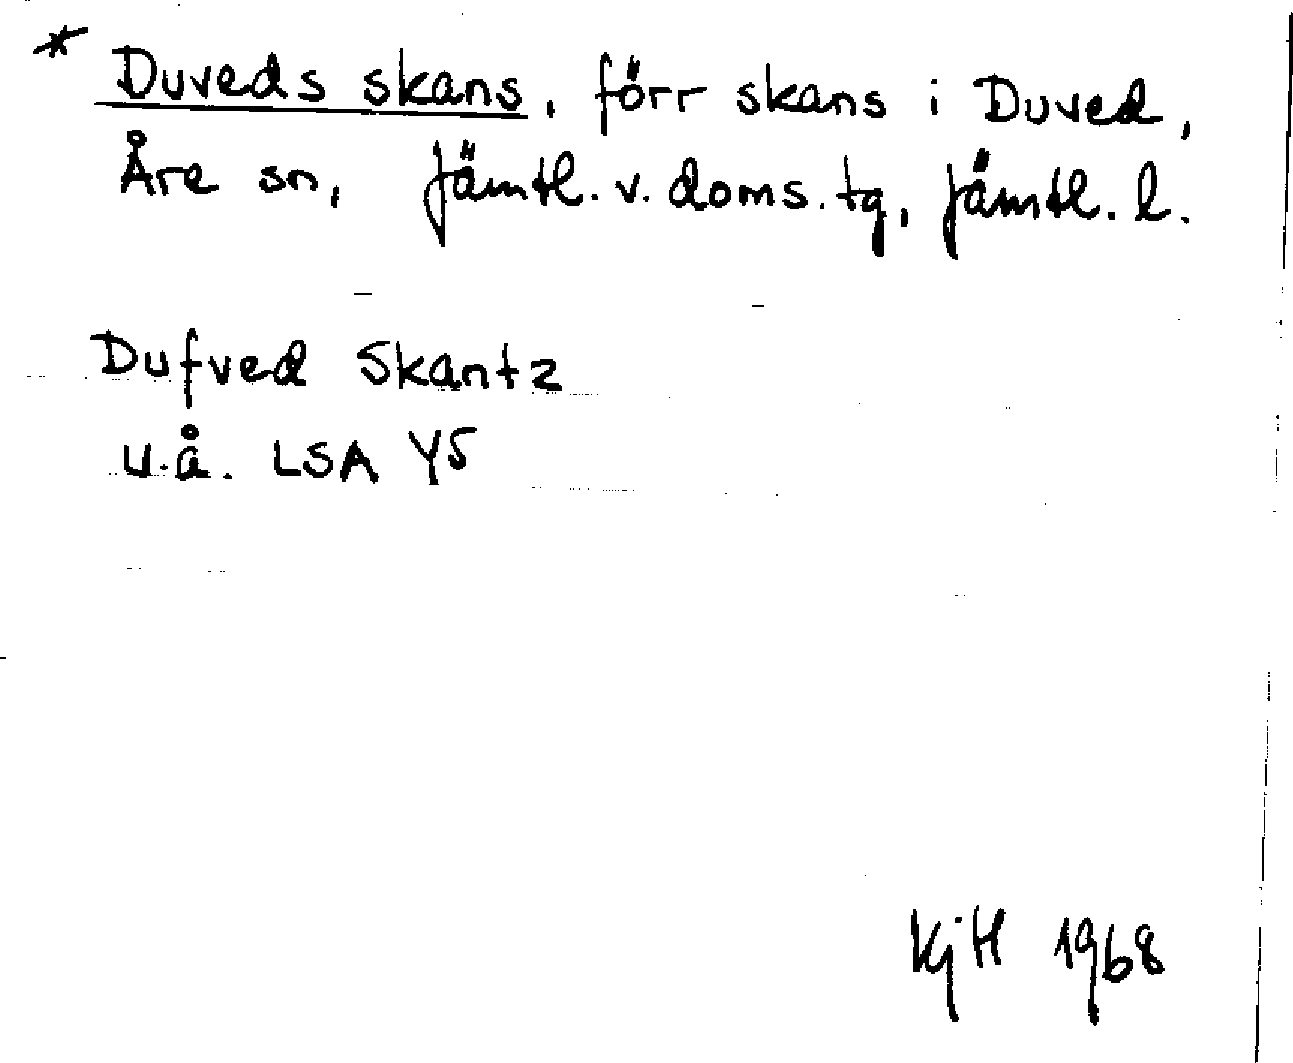 * Duveds skans, förr skans i Duved,
Åre sn, Jämtl. v. doms. tg, Jämtl. l.
Dufved Skantz
u.å. LSA Y5
KjH 1968